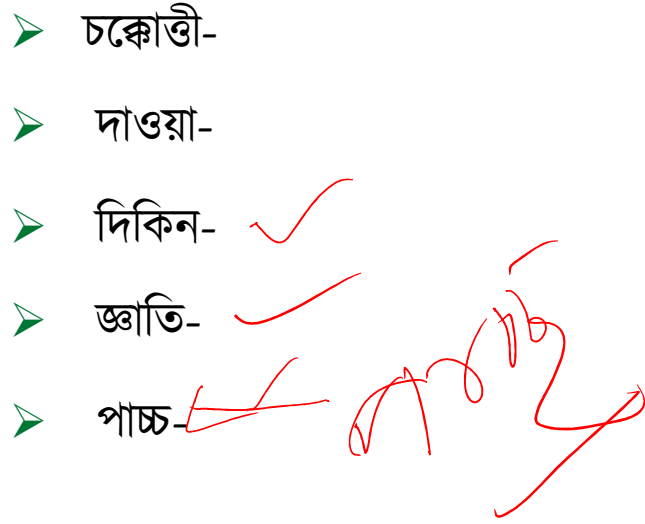 চক্কোত্তী-
দাওয়া-
দিকিন-
জ্ঞাতি-
পাচ্চ-